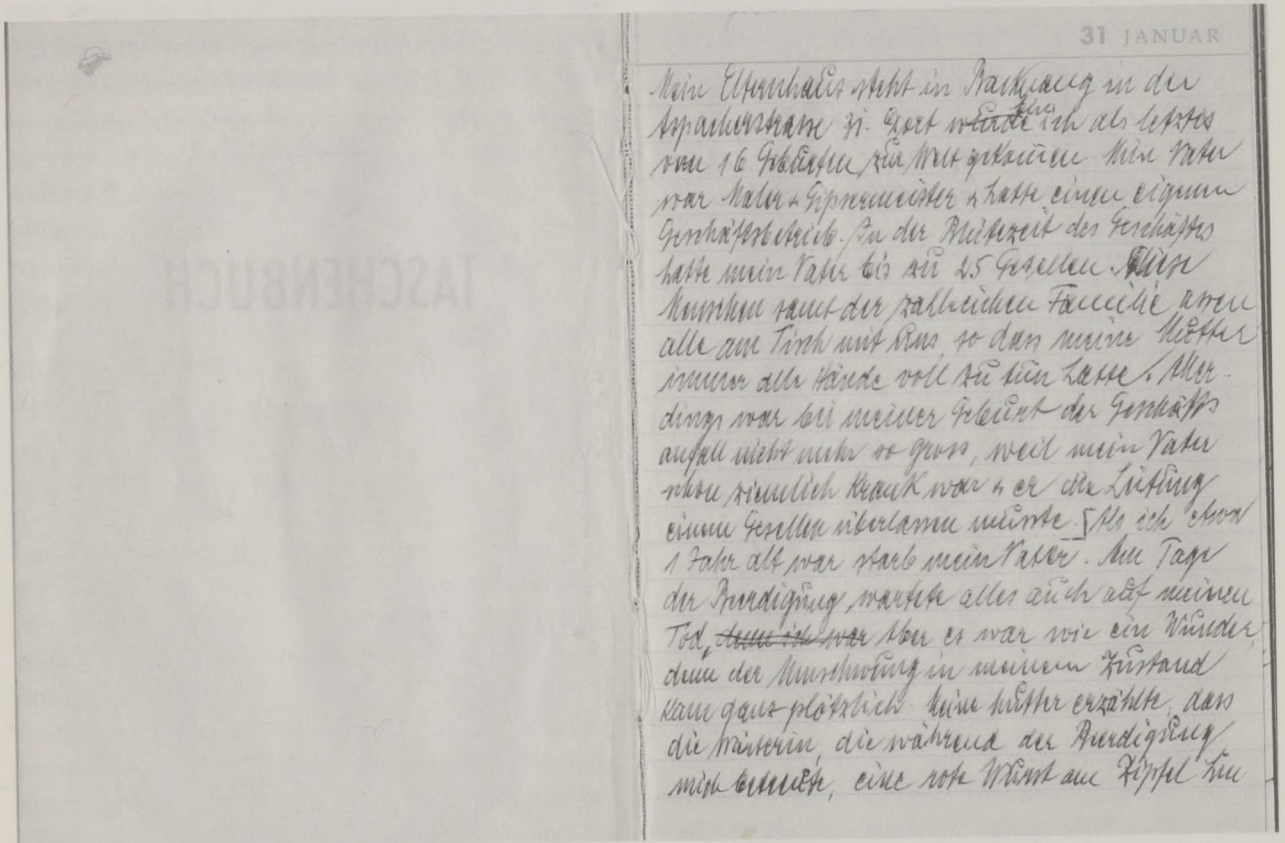 TASCHENBUCH
31 JANUAR
Mein Elternhaus steht in Backnang in der
Aspacherstrasse 31. Dort wurde bin ich als letztes
von 16 Geburten zur Welt gekommen. Mein Vater
war Maler & Gipsermeister & hatte einen eigenen
Geschäftsbetrieb. In der Blütezeit des Geschäftes
hatte mein Vater bis zu 25 Gesellen. Diese
Menschen samt der zahlreichen Familie assen
alle am Tisch mit uns, so dass meine Mutter
immer alle Hände voll zu tun hatte. Aller-
dings war bei meiner Geburt der Geschäfts
anfall nicht mehr so gross, weil mein Vater
schon ziemlich krank war & er die Leitung
einem Gesellen überlassen musste. [Als ich etwa
1 Jahr alt war starb mein Vater. Am Tage
der Beerdigung wartete alles auch auf meinen
Tod, denn ich war Aber es war wie ein Wunder,
denn der Umschwung in meinem Zustand
kam ganz plötzlich. Meine Mutter erzählte, dass
die Wärterin, die während der Beerdigung
mich betreute, eine rote Wurst am Zipfel hin